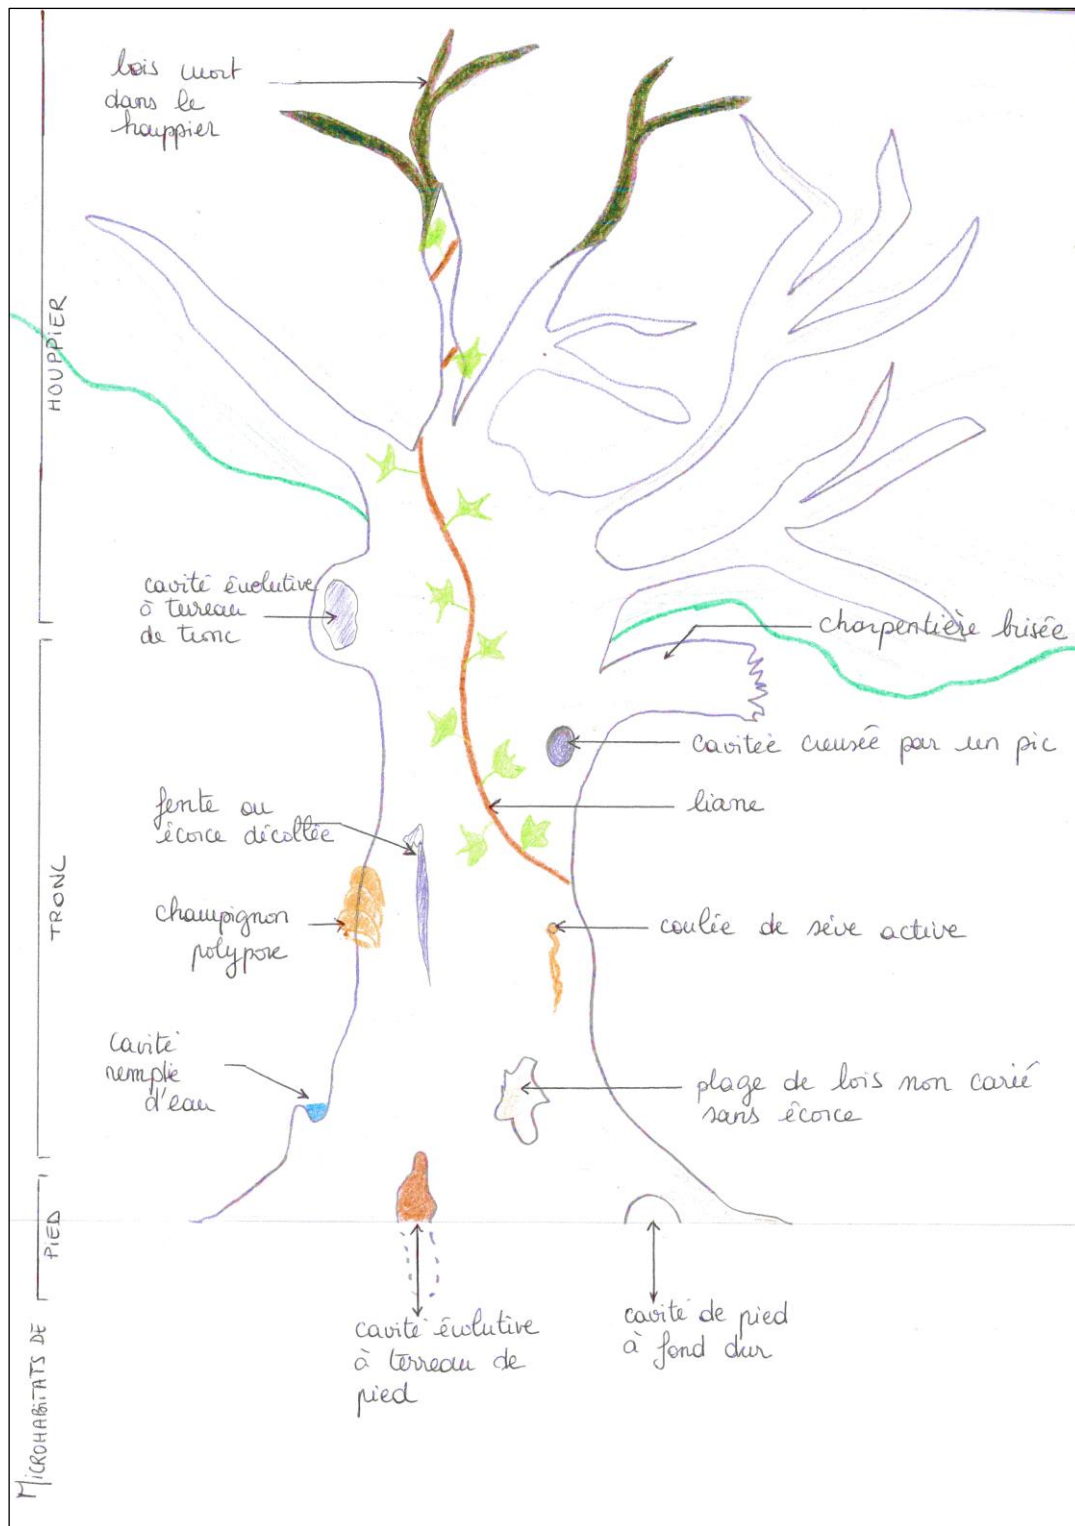 bois mort
dans le
houppier
HOUPPIER
cavité évolutive
à terreau
de tronc
charpentière brisée
cavitée creusée par un pic
liane
fente ou
écorce décollée
TRONC
champignon
polypore
coulée de sève active
cavité
remplie
d'eau
plage de bois non carié
sans écorce
PIED
cavité évolutive
à terreau de
pied
cavité de pied
à fond dur
MICROHABITATS DE